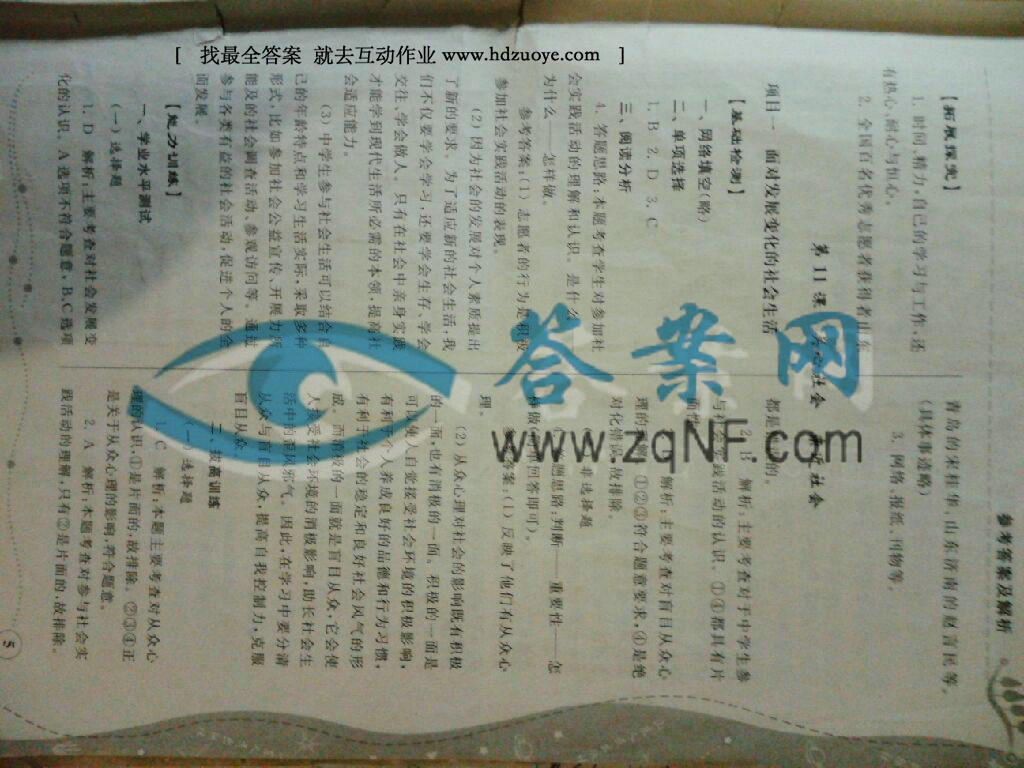 [ 找最全答案 就去互动作业 www.hdzuoye.com ]
参考答案及解析
【拓展探究】
1. 时间，精力，自己的学习与工作，还
有热心、耐心与恒心。
2. 全国百名优秀志愿者获得者山东
青岛的宋桂华，山东济南的赵言民等。
(具体事迹略)
3. 网络、报纸、刊物等。
第11课 关心社会 亲近社会
项目一 面对发展变化的社会生活
【基础检测】
一、网络填空(略)
二、单项选择
1. B 2. D 3. C
三、阅读分析
4. 答题思路：本题考查学生对参加社
会实践活动的理解和认识。是什么——
为什么——怎样做。
参考答案：(1)志愿者的行为是积极
参加社会实践活动的表现。
(2)因为社会的发展对个人素质提出
了新的要求。为了适应新的社会生活，我
们不仅要学会学习，还要学会生存、学会
交往、学会做人。只有在社会中亲身实践
才能学到现代生活所必需的本领，提高社
会适应能力。
(3)中学生参与社会生活可以结合自
己的年龄特点和学习生活实际，采取多种
形式：比如参加社会公益宣传、开展力所
能及的社会调查活动、参观访问等，通过
参与各类有益的社会活动，促进个人的全
面发展。
【能力训练】
一、学业水平测试
(一)选择题
1. D 解析：主要考查对社会发展变
化的认识。A选项不符合题意，B、C选项
都是 的。
2. B 解析：主要考查对于中学生参
与社会实践活动的认识。①④都具有片
面性
解析：主要考查对盲目从众心
理的 ①②③符合题意要求，④是绝
对化错误，故排除。
非选择题
题思路：判断——重要性——怎
样做( 回答即可)。
参考答案：(1)反映了他们有从众心
理。
(2)从众心理对社会的影响既有积极
的一面也有消极的一面。积极的一面是
可以使人自觉接受社会环境的积极影响，
有利于个人养成良好的品德和行为习惯，
有利于社会的稳定和良好社会风气的形
成。而消极的一面就是盲目从众，它会使
人接受社会环境的消极影响，助长社会生
活中的歪风邪气。因此，在学习中要分清
从众与盲目从众，提高自我控制力，克服
盲目从众。
二、拔高训练
(一)选择题
1. C 解析：本题主要考查对从众心
理的认识。①是片面的，故排除。②③④正
是关于从众心理的影响，符合题意。
2. A 解析：本题考查对参与社会实
践活动的理解，只有②是片面的，故排除。
5
答案网
www.zqNF.com